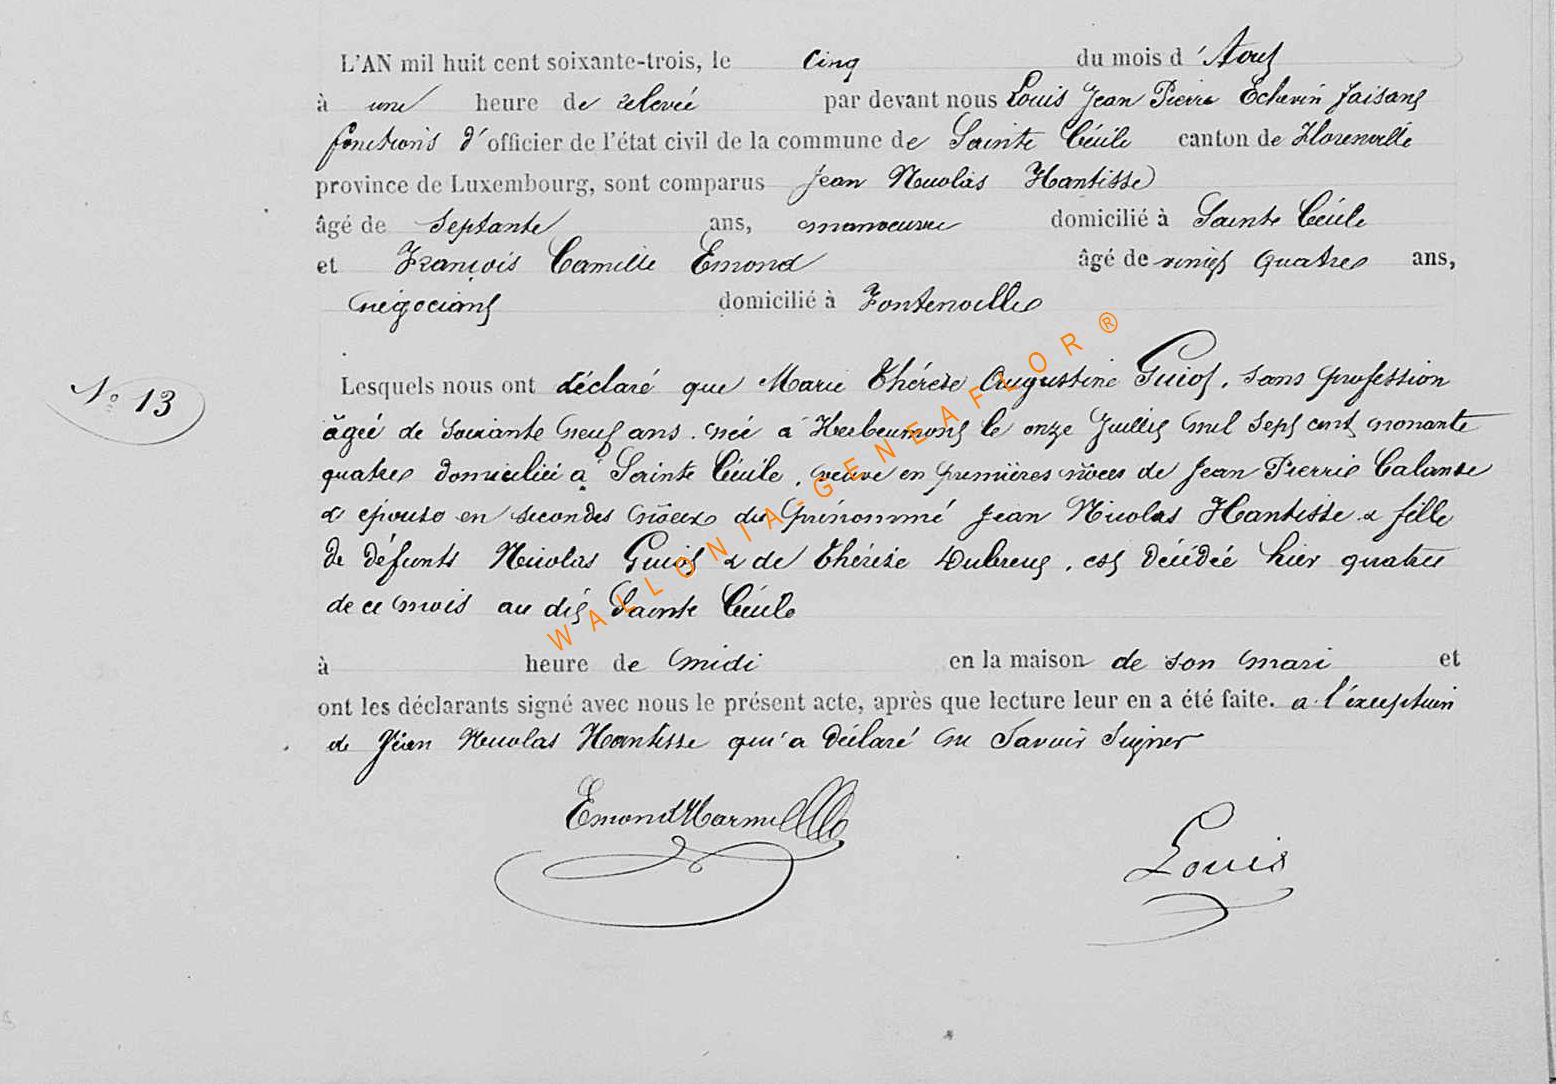 L'AN mil huit cent soixante-trois, le cinq du mois d'Aout
à une heure de relevée par devant nous Louis Jean Pierre Echevin faisant
fonctions d'officier de l'état civil de la commune de Sainte Cécile canton de Florenville
province de Luxembourg, sont comparus Jean Nicolas Hantisse
âgé de Septante ans, manoeuvre domicilié à Sainte Cécile
et François Camille Emond âgé de vingt quatre ans,
négociant domicilié à Fontenoille
N° 13
Lesquels nous ont déclaré que Marie Thérèse Augustine Guiot, sans profession
âgée de soixante neuf ans. née à Herbeumont le onze Juillet mil sept cent nonante
quatre domiciliée à Sainte Cécile, veuve en premières nôces de Jean Pierre Calande
& épouse en secondes nôces du prénommé Jean Nicolas Hantisse & fille
de défunts Nicolas Guiot & de Thérèse Dubreux, est décédée hier quatre
de ce mois au dit Sainte Cécile
à heure de midi en la maison de son mari et
ont les déclarants signé avec nous le présent acte, après que lecture leur en a été faite. a l'exception
de Jean Nicolas Hantisse qui a déclaré ne savoir signer
Emond Louis
WALLONIA-GENEAFLOR®